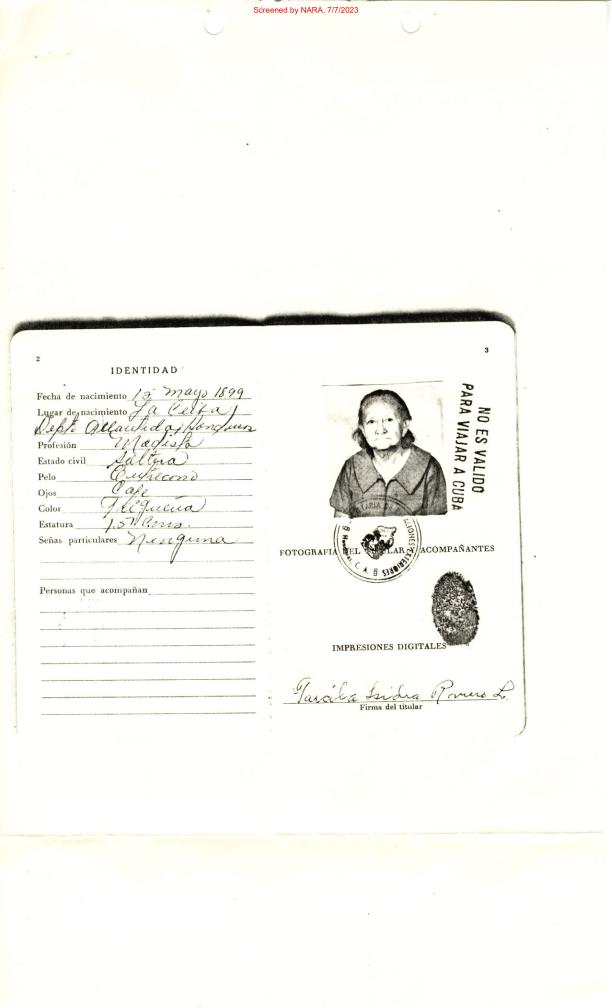 Screened by NARA, 7/7/2023
2
IDENTIDAD
Fecha de nacimiento 15 Mayo 1899
Lugar de nacimiento La Ceiba,
Depto Atlantida, Honduras
Profesión
Estado civil Soltera
Pelo Entrecano
Ojos Cafe
Color Trigueña
Estatura
Señas particulares Ninguna
Personas que acompañan
3
NO ES VALIDO
PARA VIAJAR A CUBA
FOTOGRAFIA DEL TITULAR ACOMPAÑANTES
EXTERIORES
C. A.
IMPRESIONES DIGITALES
Tarcila Isidra Romero L.
Firma del titular